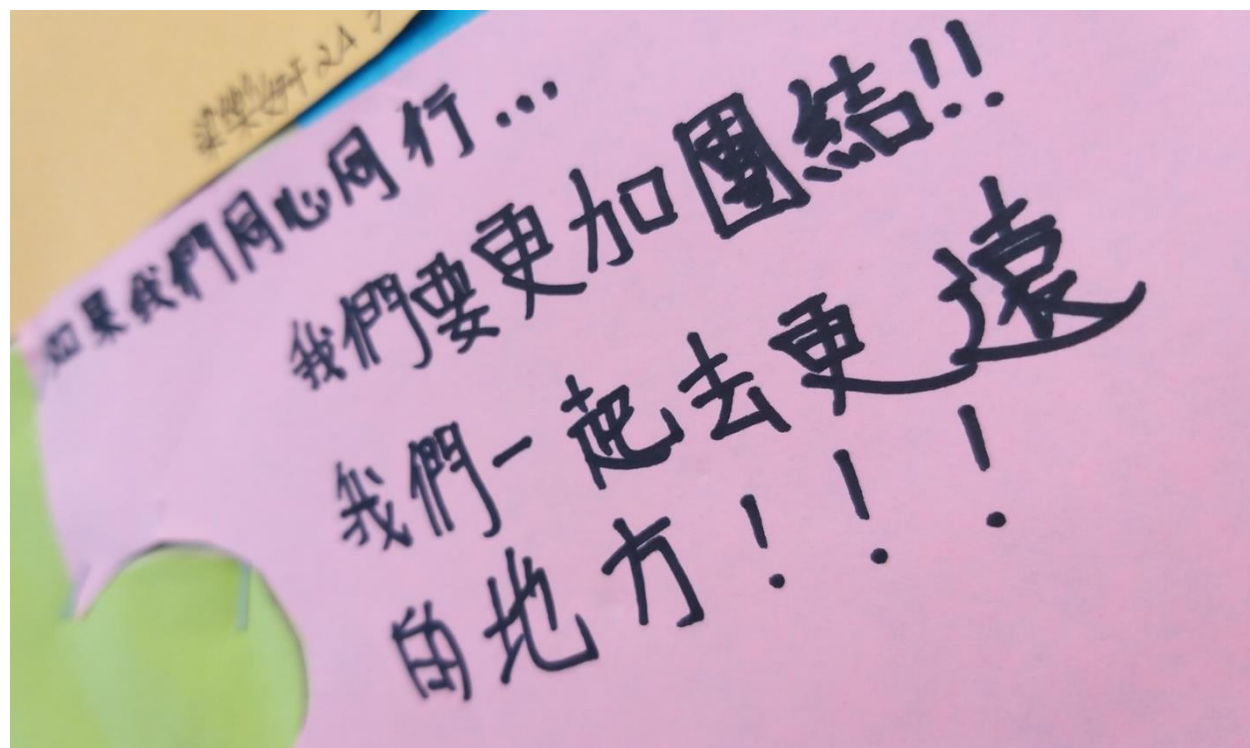 如果我們同心同行...
我們要更加團結!!
我們一起去更遠
的地方!!!